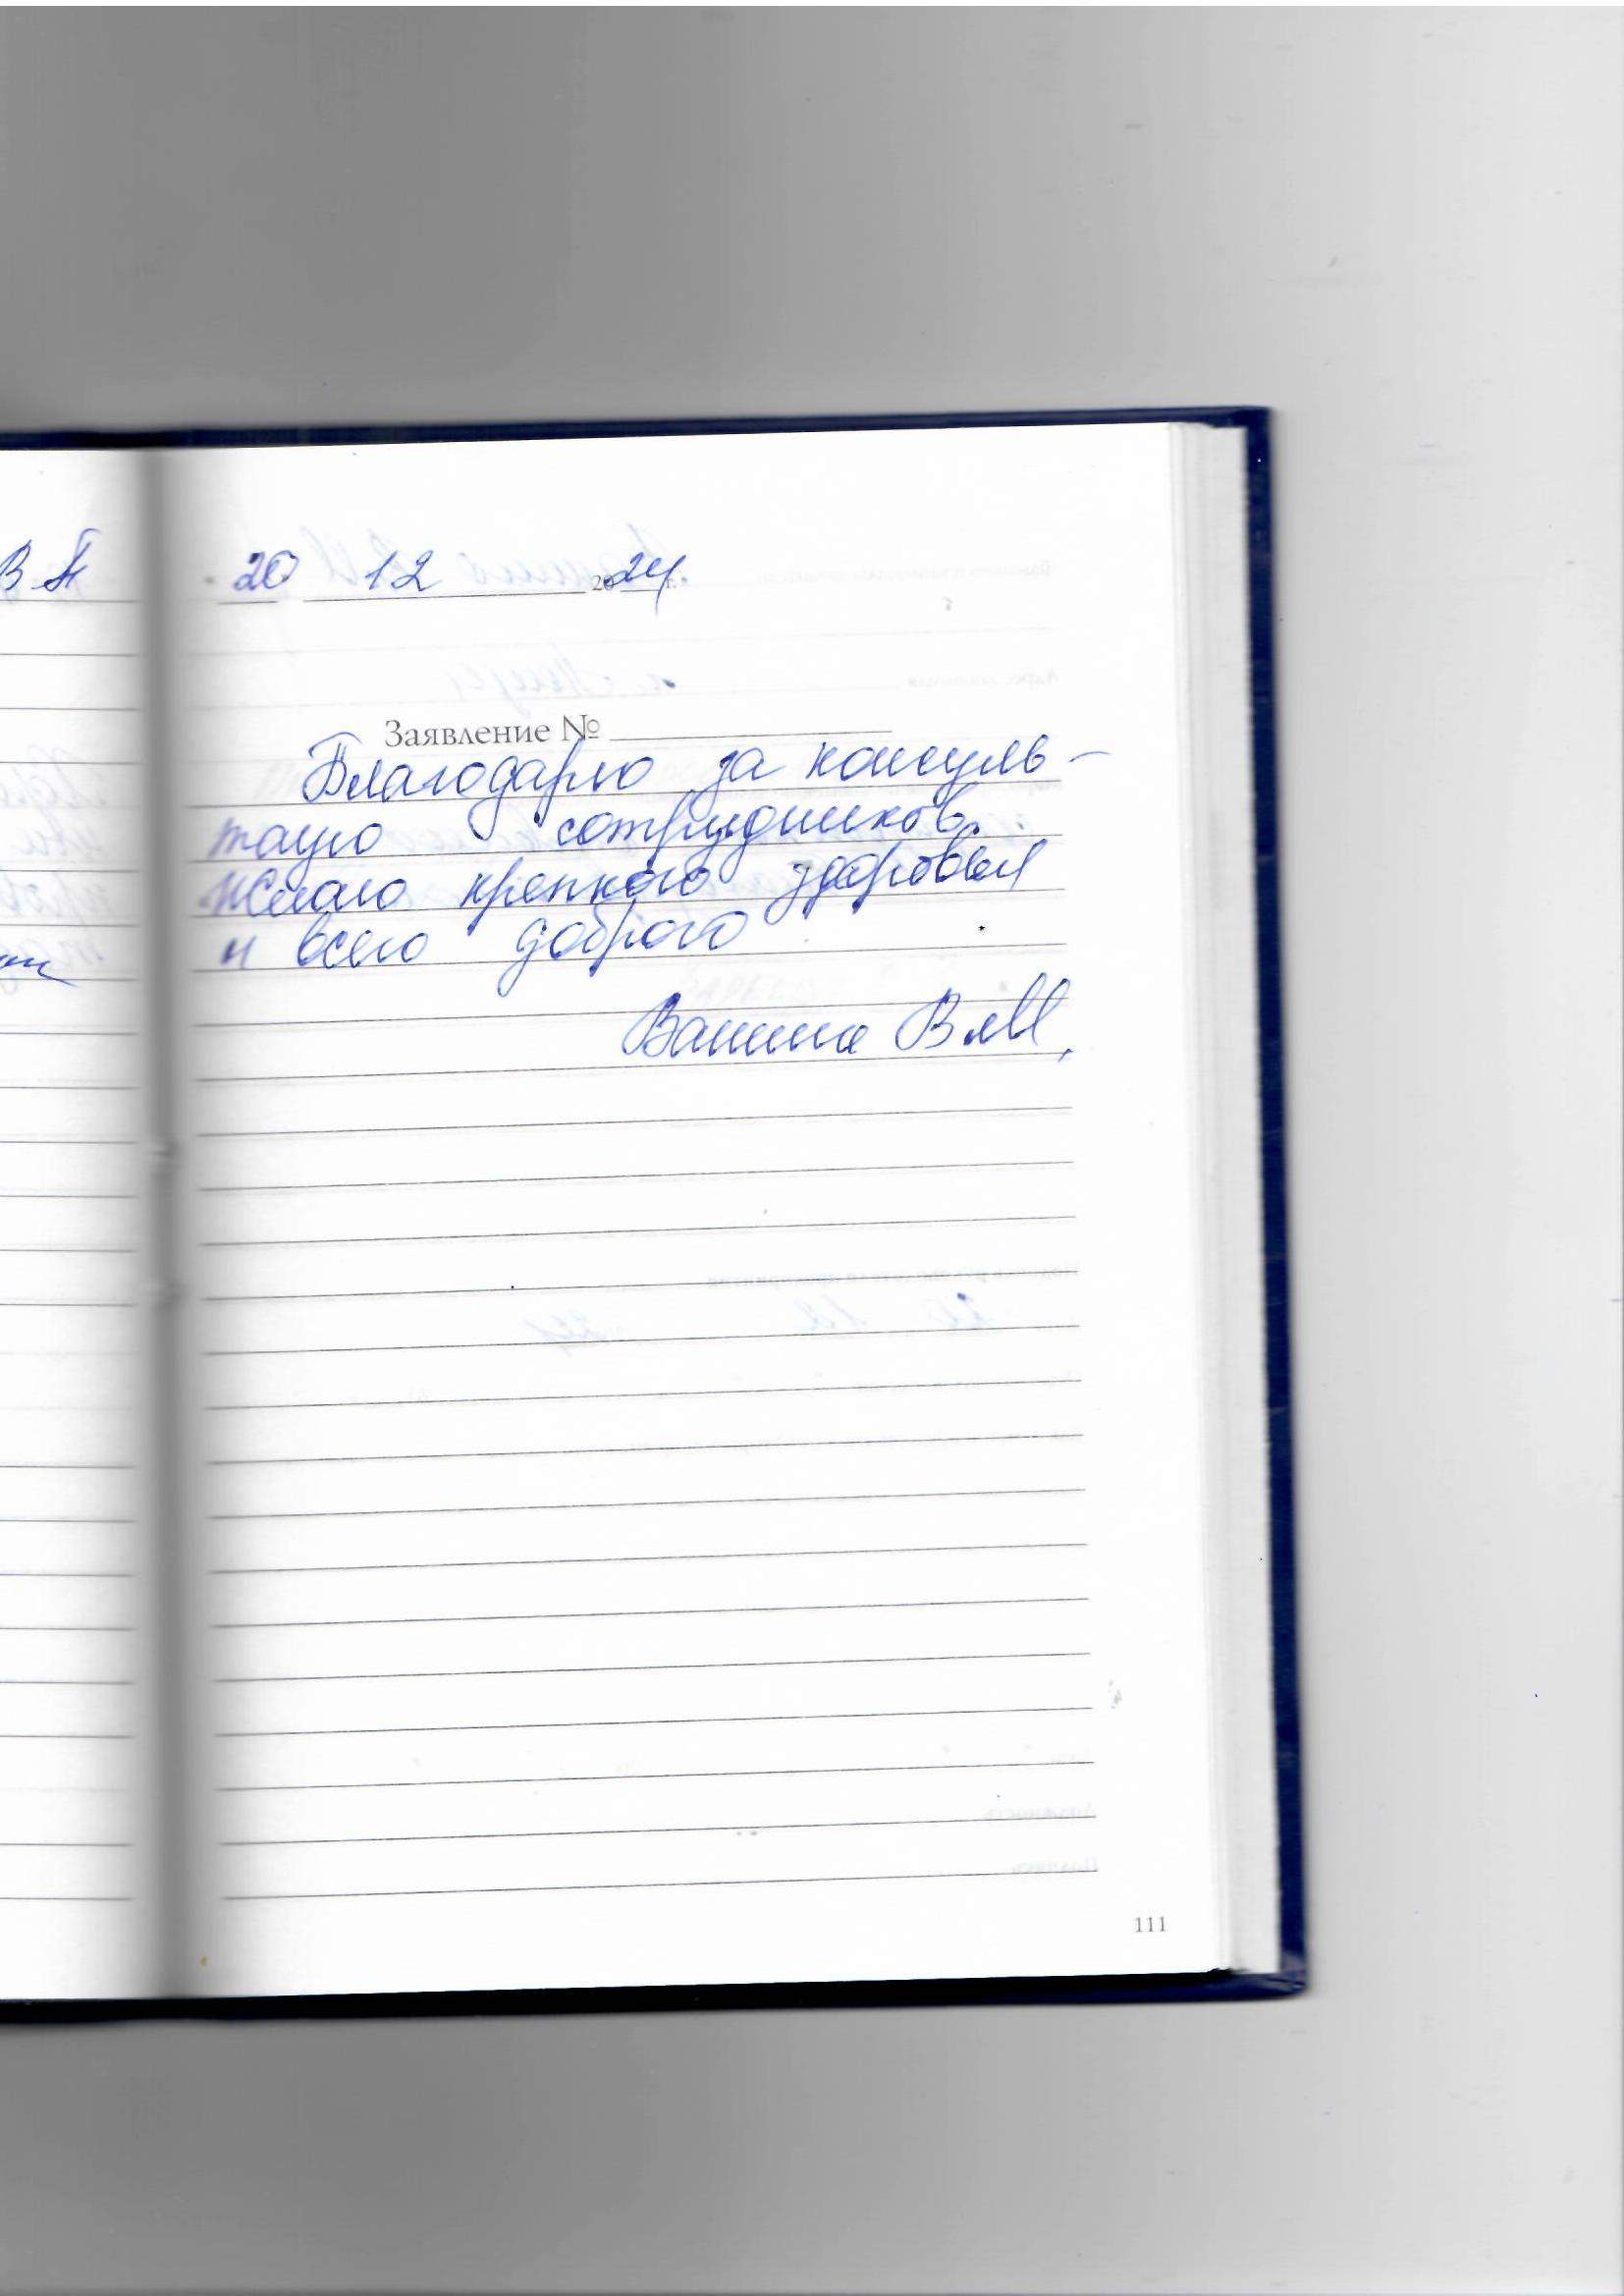 20 12 2024 г.
Заявление №
Благодарю за консуль-
тацию сотрудников.
Желаю крепкого здоровья
и всего доброго
Ванина В.М.
111